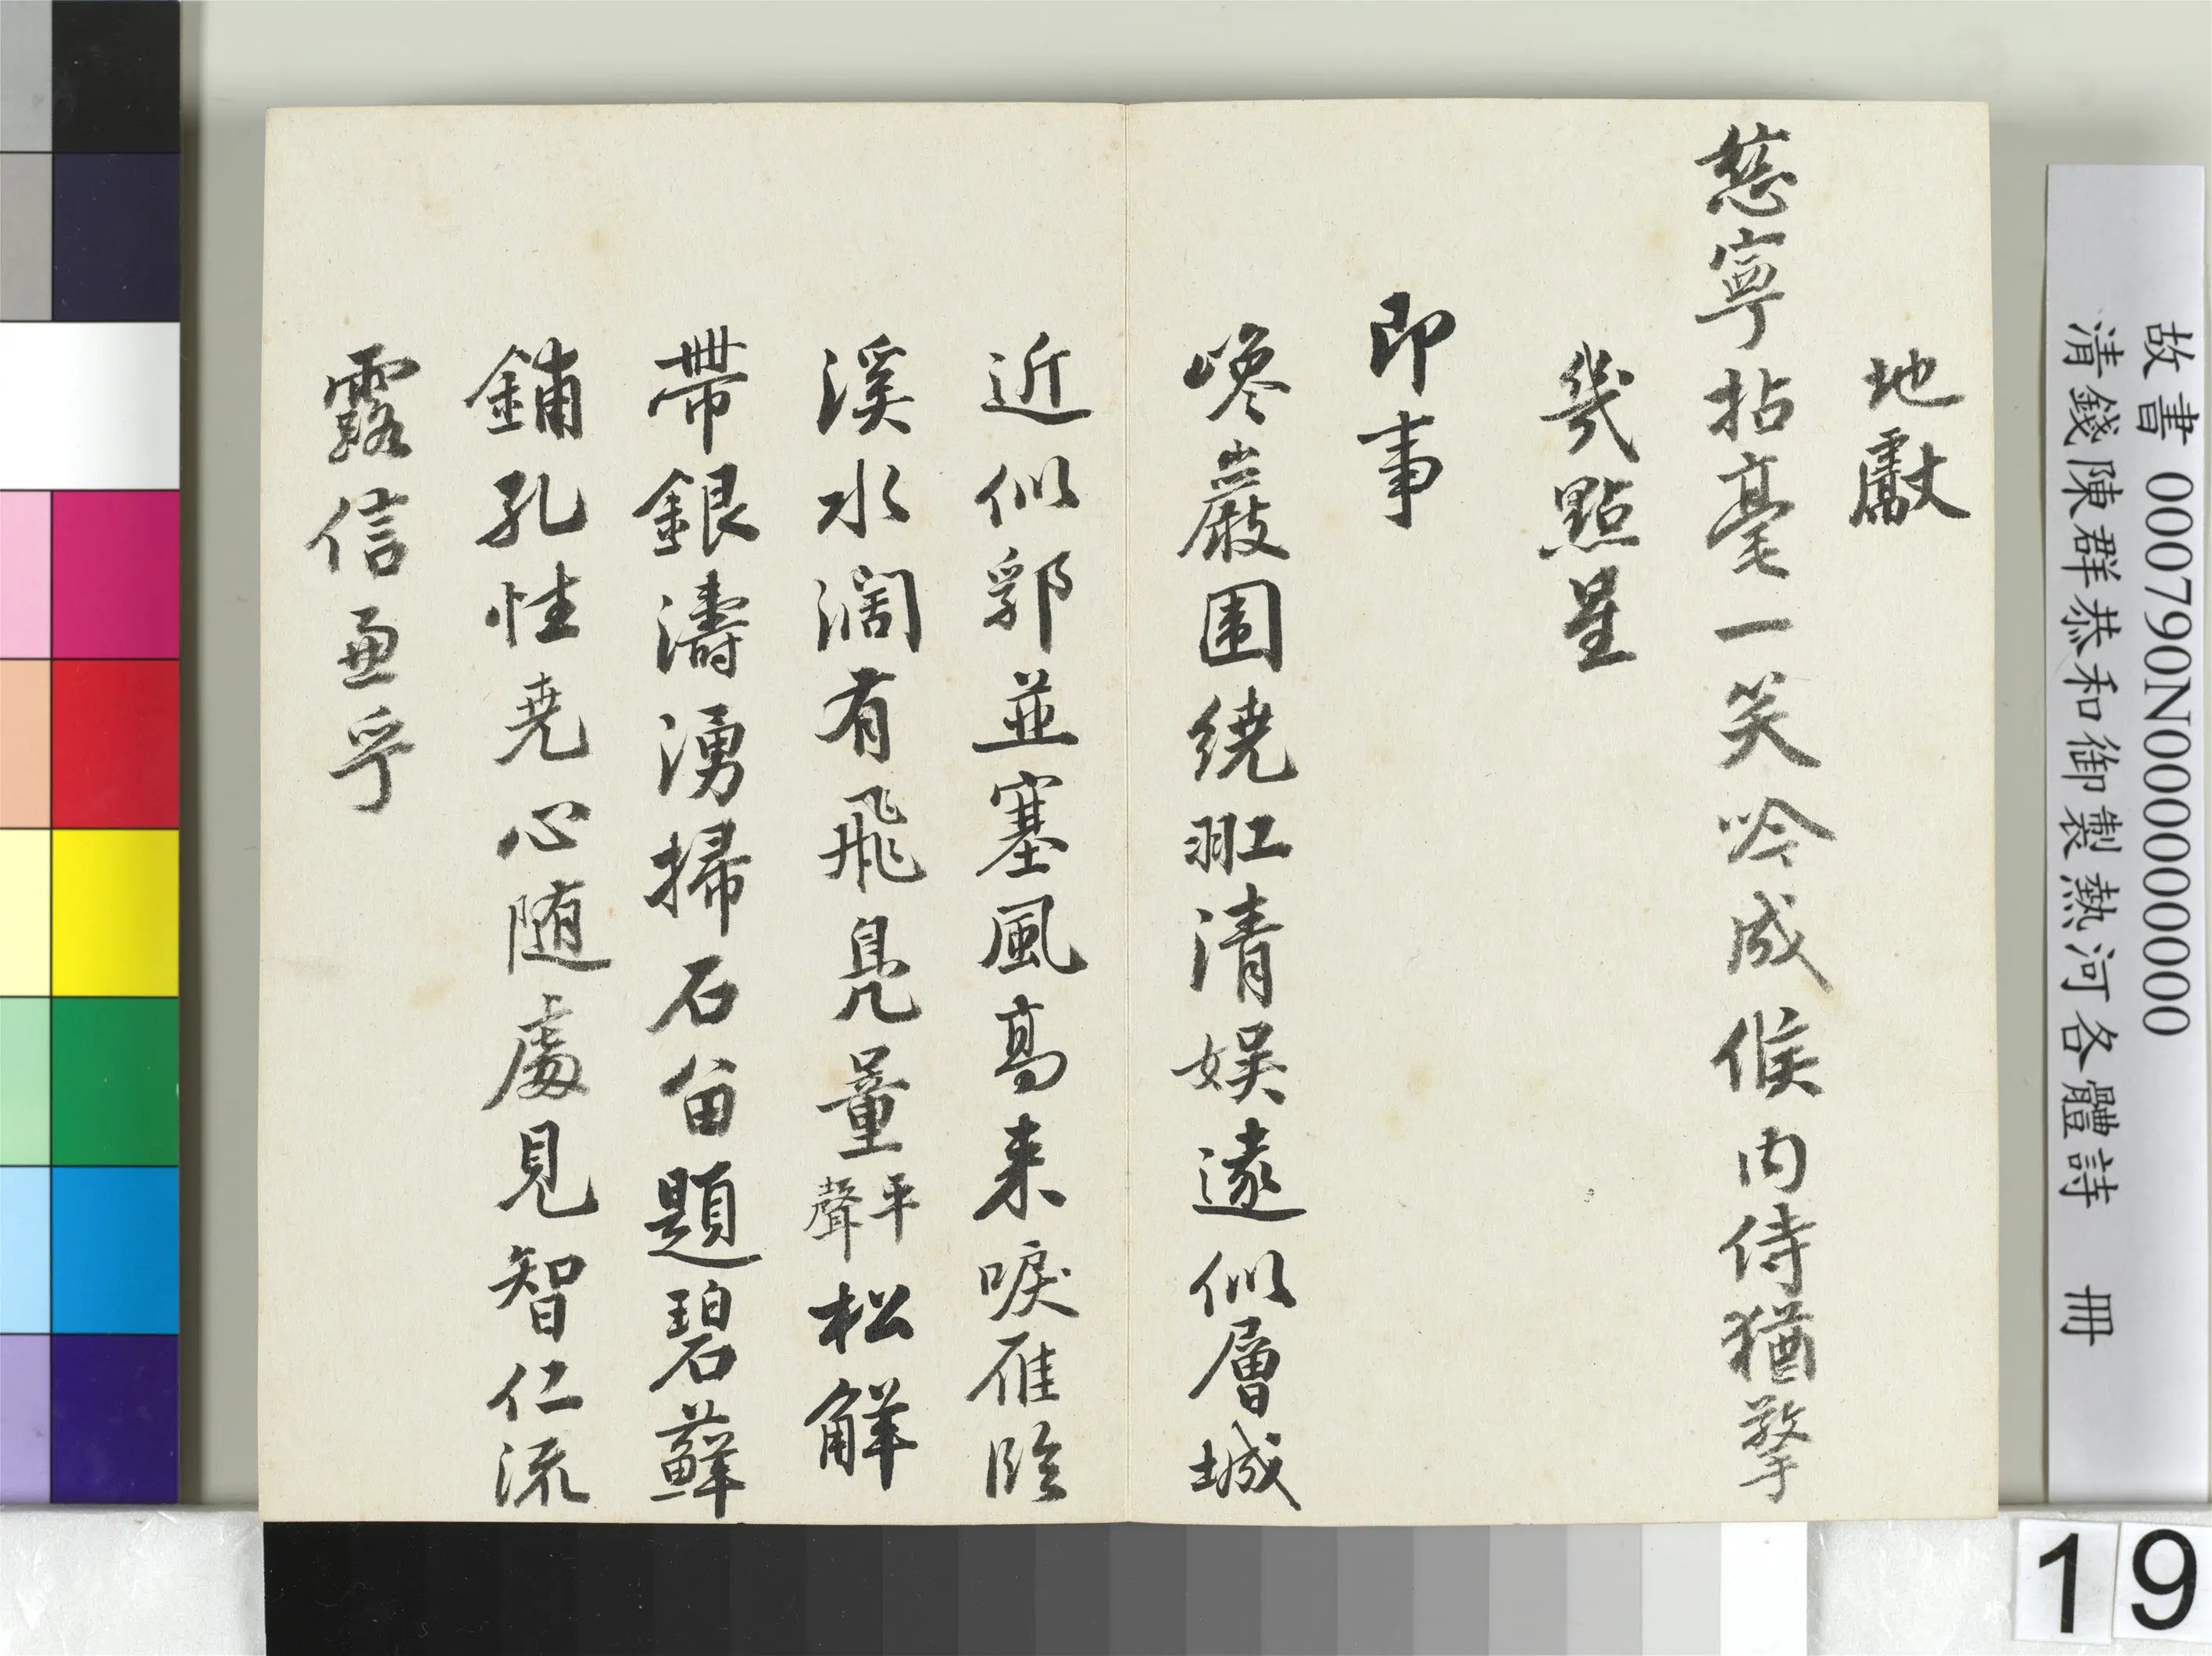 故書 000790N000000000
清錢陳群恭和御製熱河各體詩 冊
地獻
慈寧拈毫一笑吟成候内侍猶擎
幾點星
即事
巉巖围繞羾清娱遠似層城
近似郛並塞風高来唳雁臨
溪水濶有飛鳧量平聲松觧
帶銀濤湧掃石留題碧蘚
鋪孔性尭心随處見智仁流
露信乎
19